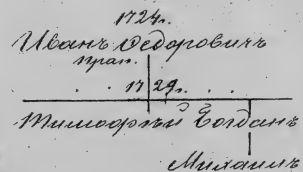 1724г.
Иванъ Ѳедоровичъ
прап.
1729г.
Тимоѳѣй Богданъ
Михаилъ